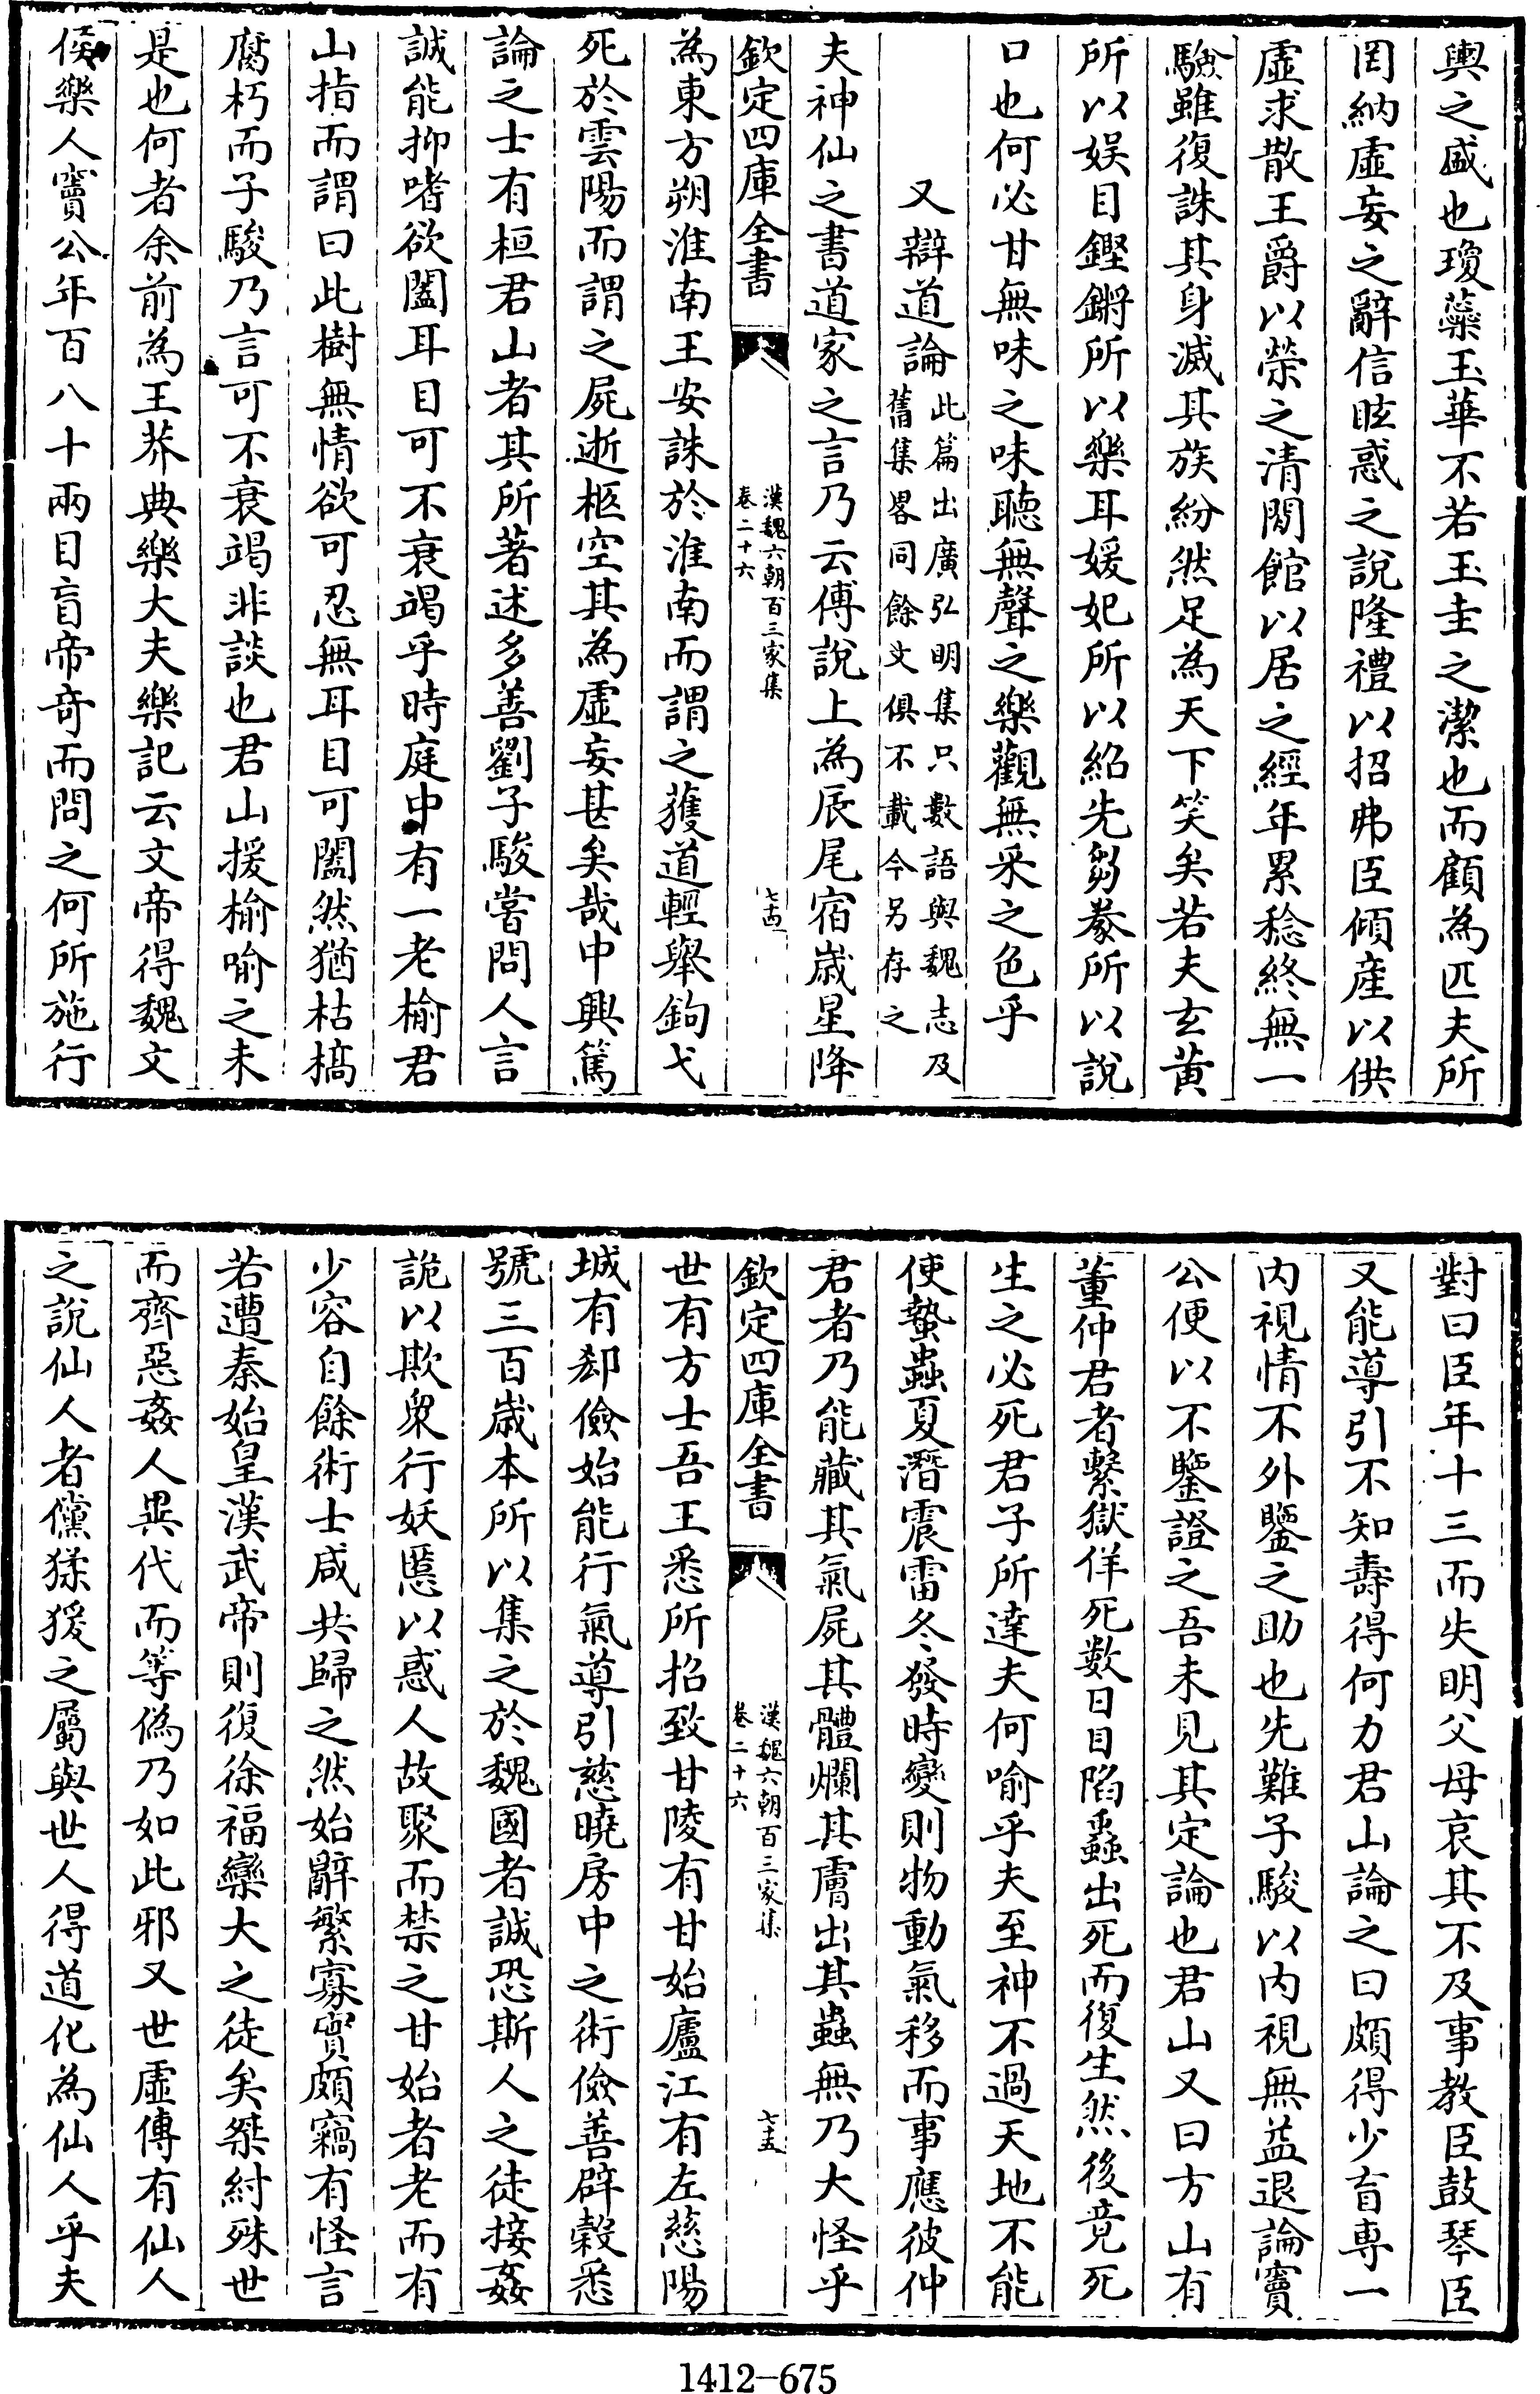 輿之盛也瓊蘂玉華不若玉圭之潔也而顧為匹夫所
罔納虛妄之辭信眩惑之說隆禮以招弗臣傾產以供
虛求散王爵以榮之清閒館以居之經年累稔終無一
驗雖復誅其身滅其族紛然足為天下笑矣若夫玄黃
所以娛目鏗鏘所以樂耳媛妃所以紹先芻豢所以說
口也何必甘無味之味聽無聲之樂觀無采之色乎
又辯道論此篇出廣弘明集只數語與魏志及
舊集畧同餘文俱不載今另存之
夫神仙之書道家之言乃云傅說上為辰尾宿歲星降
欽定四庫全書
漢魏六朝百三家集
卷二十六
七十四
為東方朔淮南王安誅於淮南而謂之獲道輕舉鉤弋
死於雲陽而謂之屍逝柩空其為虛妄甚矣哉中興篤
論之士有桓君山者其所著述多善劉子駿嘗問人言
誠能抑嗜欲闔耳目可不衰竭乎時庭中有一老榆君
山指而謂曰此樹無情欲可忍無耳目可闔然猶枯槁
腐朽而子駿乃言可不衰竭非談也君山援榆喻之未
是也何者余前為王莽典樂大夫樂記云文帝得魏文
侯樂人竇公年百八十兩目盲帝竒而問之何所施行
對曰臣年十三而失明父母哀其不及事教臣鼓琴臣
又能導引不知壽得何力君山論之曰頗得少盲專一
内視情不外鑒之助也先難子駿以内視無益退論竇
公便以不鑒證之吾未見其定論也君山又曰方山有
董仲君者繫獄佯死數日目陷蟲出死而復生然後竟死
生之必死君子所達夫何喻乎夫至神不過天地不能
使蟄蟲夏潛震雷冬發時變則物動氣移而事應彼仲
君者乃能藏其氣屍其體爛其膚出其蟲無乃大怪乎
欽定四庫全書
漢魏六朝百三家集
卷二十六
七十五
世有方士吾王悉所招致甘陵有甘始廬江有左慈陽
城有郄儉始能行氣導引慈曉房中之術儉善辟穀悉
號三百歲本所以集之於魏國者誠恐斯人之徒接姦
詭以欺衆行妖慝以惑人故聚而禁之甘始者老而有
少容自餘術士咸共歸之然始辭繁寡實頗竊有怪言
若遭秦始皇漢武帝則復徐福欒大之徒矣桀紂殊世
而齊惡姦人異代而等偽乃如此邪又世虛傳有仙人
之說仙人者儻猱猨之屬與世人得道化為仙人乎夫
1412-675